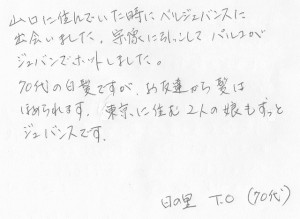 山口に住んでいた時にベルジュバンスに
出会いました。宗像に引っこしてパルコが
ジュバンでホットしました。
70代の白髪ですが、お友達から髪は
ほめられます。東京に住む2人の娘もずっと
ジュバンスです。
日の里 T.O (70代)